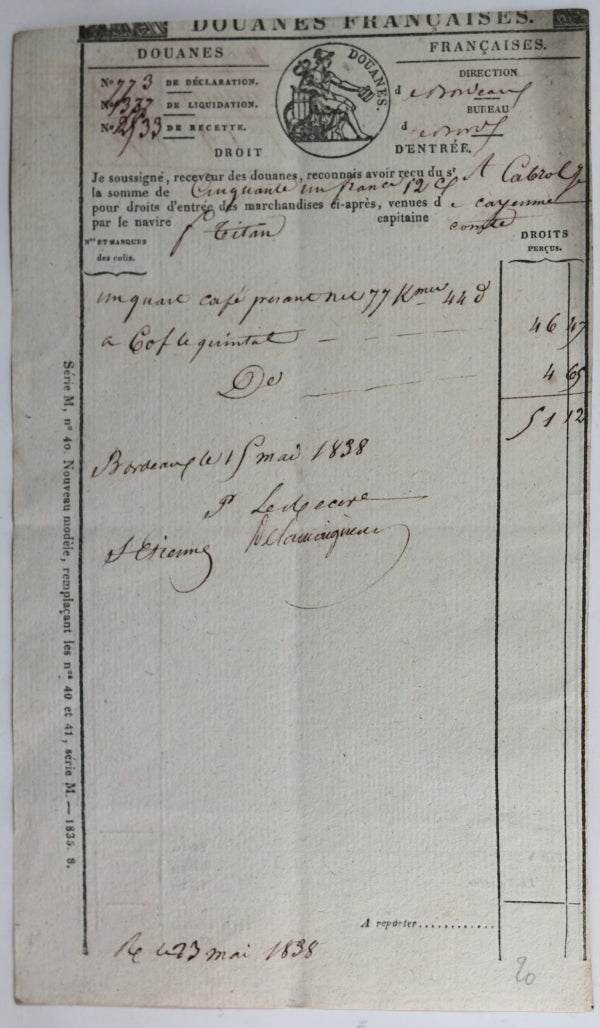 DOUANES FRANÇAISES.
DOUANES FRANÇAISES.
DOUANES.
No 773 DE DÉCLARATION.
No 1337 DE LIQUIDATION.
No 2533 DE RECETTE.
DIRECTION
d e Bordeaux
BUREAU
d e Bord
DROIT D'ENTRÉE.
Je soussigné, receveur des douanes, reconnais avoir reçu du sr A Cabrol
la somme de Cinquante un francs 12 cs
pour droits d'entrée des marchandises ci-après, venues d e cayenne
par le navire Le Titan capitaine comte
Nos ET MARQUES
des colis.
DROITS
PERÇUS.
un quart café pesant net 77 Kmes 44 d
a 60f le quintal 46 47
De 4 65
51 12
Bordeaux le 15 mai 1838
Pr Le Receve
St Etienne
Série M, no 40. Nouveau modèle, remplaçant les nos 40 et 41, série M. — 1835. 8.
A reporter............
Re le 23 mai 1838
20